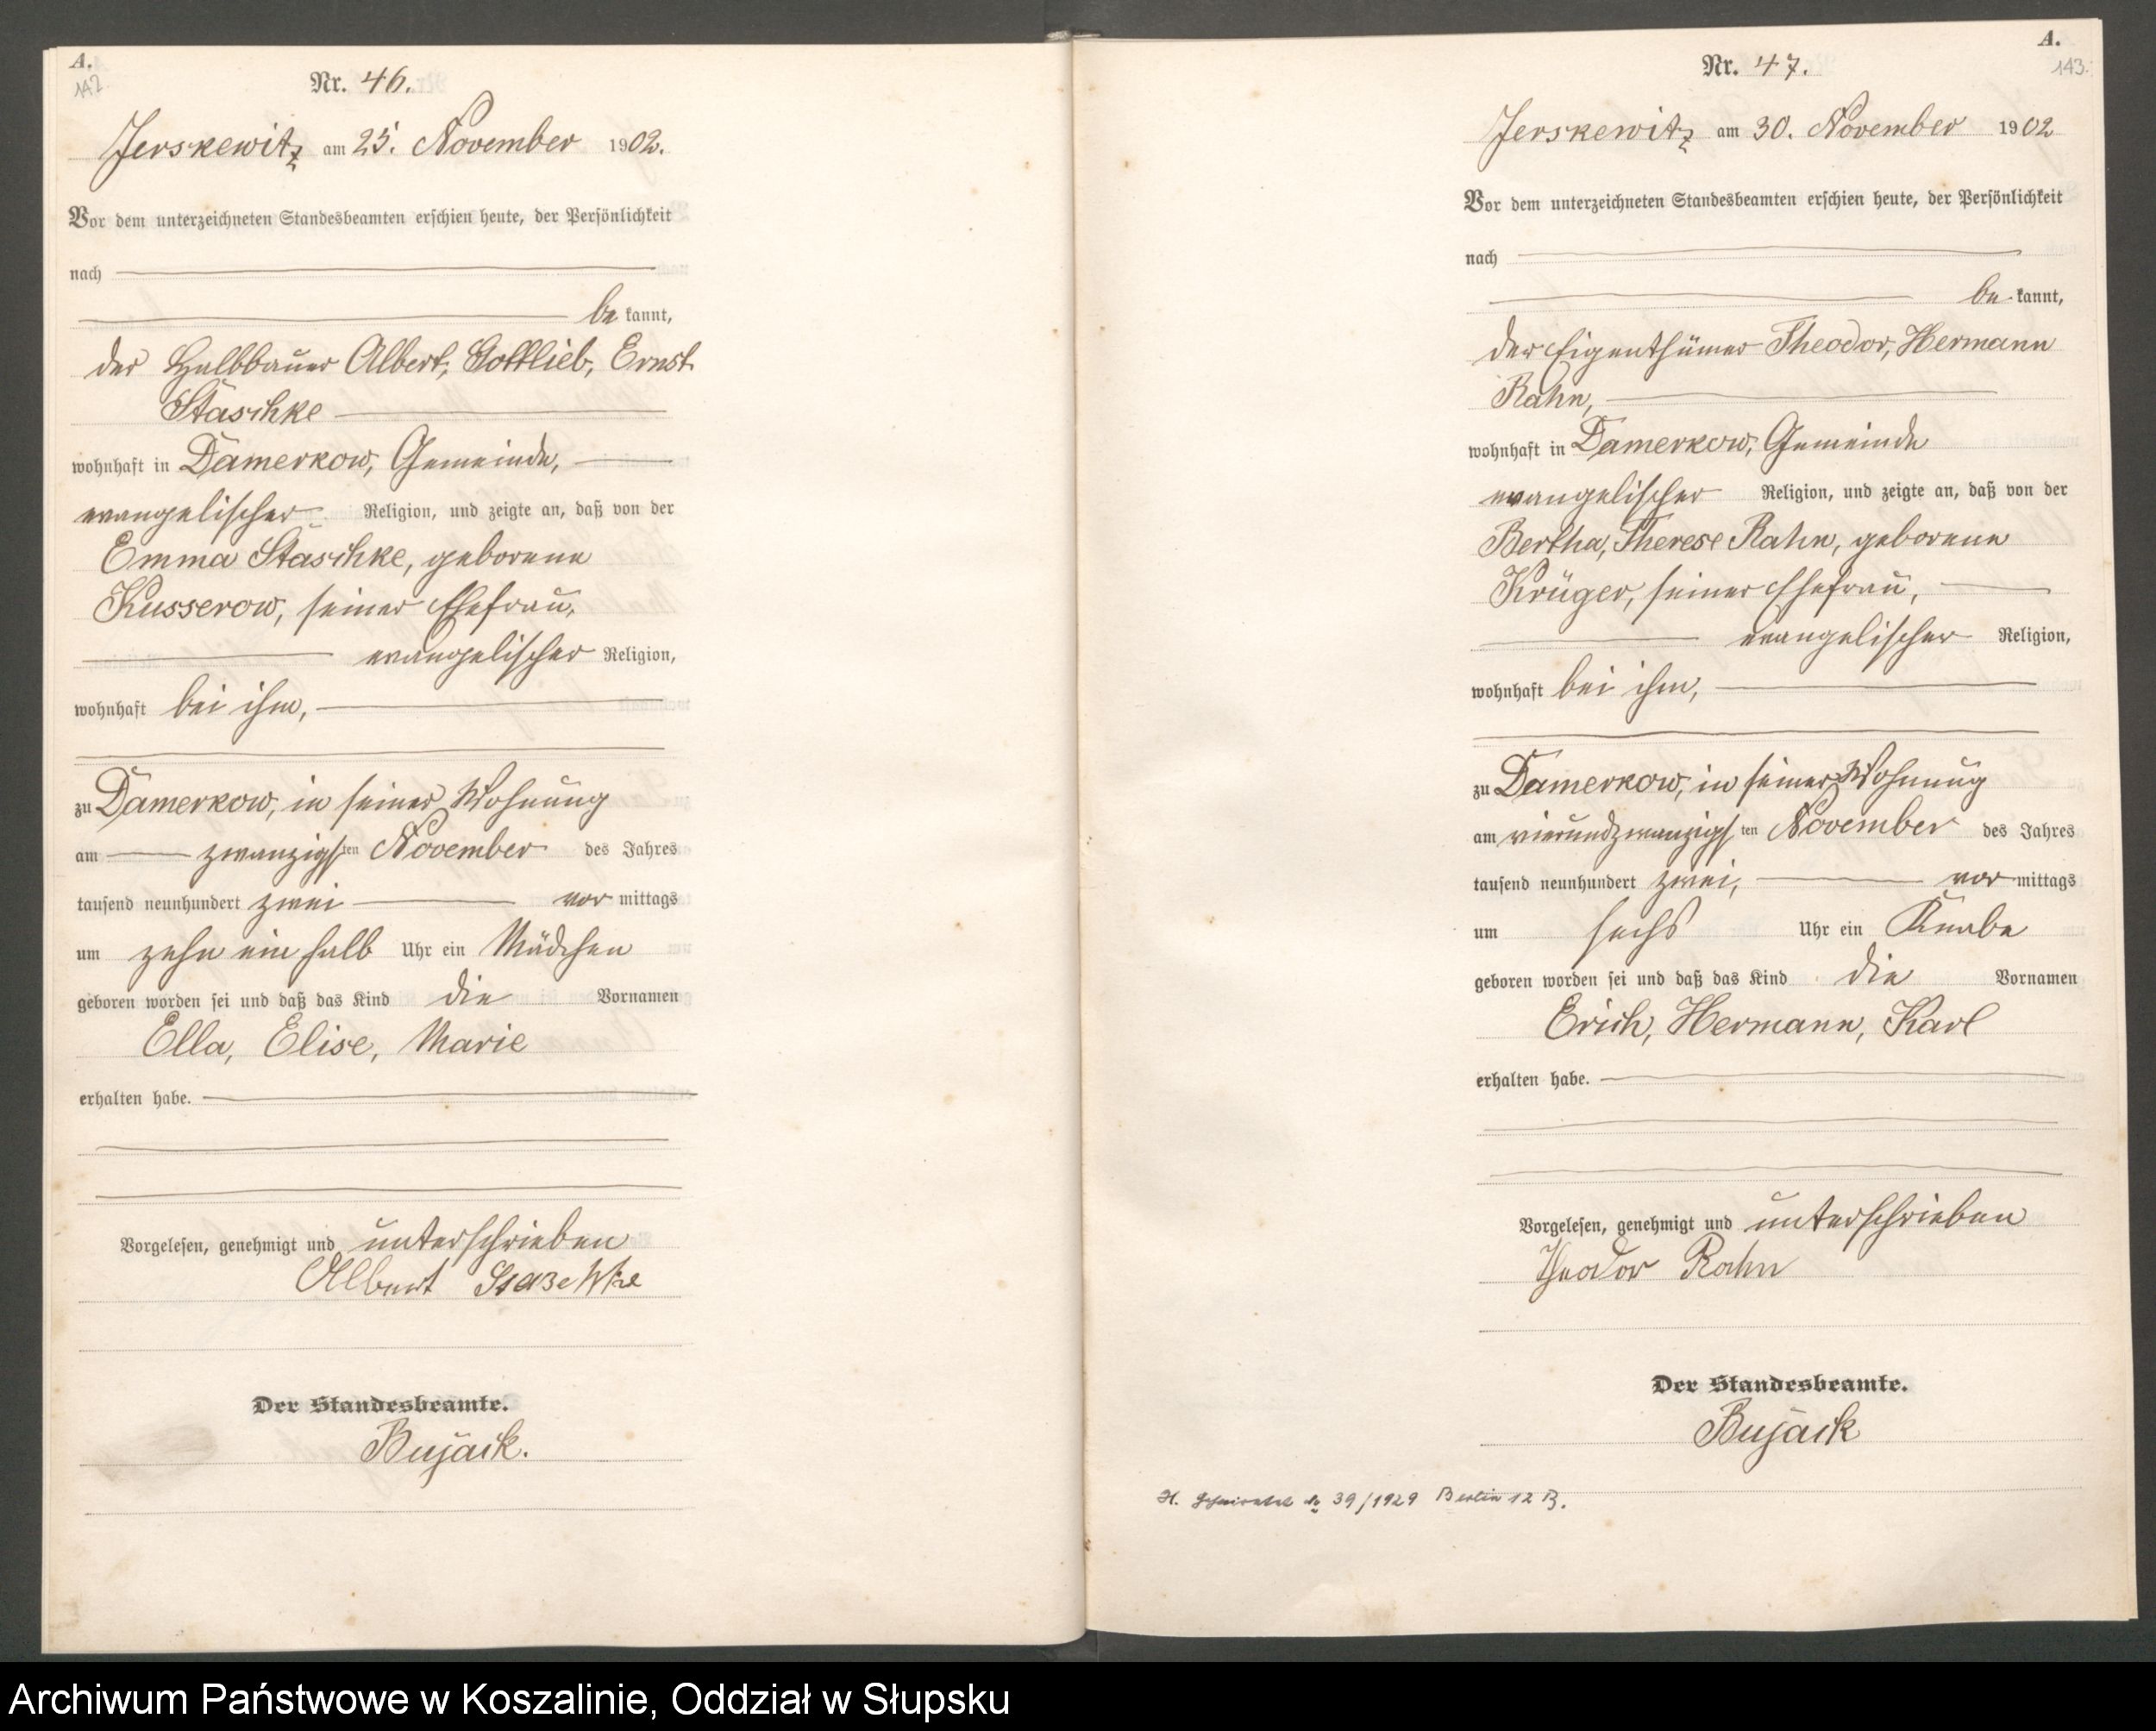 A.
142
Nr. 46.
Jerskewitz am 25. November 1902.
Vor dem unterzeichneten Standesbeamten erschien heute, der Persönlichkeit
nach
be kannt,
der Halbbauer Albert, Gottlieb, Ernst
Staschke
wohnhaft in Damerkow, Gemeinde,
evangelischer Religion, und zeigte an, daß von der
Emma Staschke, geborene
Kusserow, seiner Ehefrau,
evangelischer Religion,
wohnhaft bei ihm,
zu Damerkow, in seiner Wohnung
am zwanzigsten November des Jahres
tausend neunhundert zwei vor mittags
um zehn ein halb Uhr ein Mädchen
geboren worden sei und daß das Kind die Vornamen
Ella, Elise, Marie
erhalten habe.
Vorgelesen, genehmigt und unterschrieben
Albert Staschke
Der Standesbeamte.
Bujack.
A.
143.
Nr. 47.
Jerskewitz am 30. November 1902
Vor dem unterzeichneten Standesbeamten erschien heute, der Persönlichkeit
nach
be kannt,
der Eigenthümer Theodor, Hermann
Rahn,
wohnhaft in Damerkow, Gemeinde
evangelischer Religion, und zeigte an, daß von der
Bertha, Therese Rahn, geborene
Krüger, seiner Ehefrau,
evangelischer Religion,
wohnhaft bei ihm,
zu Damerkow, in seiner Wohnung
am vierundzwanzigsten November des Jahres
tausend neunhundert zwei, vor mittags
um sechs Uhr ein Knabe
geboren worden sei und daß das Kind die Vornamen
Erich, Hermann, Karl
erhalten habe.
Vorgelesen, genehmigt und unterschrieben
Theodor Rahn
Der Standesbeamte.
Bujack
39/1929 Berlin 12 B.
Archiwum Państwowe w Koszalinie, Oddział w Słupsku